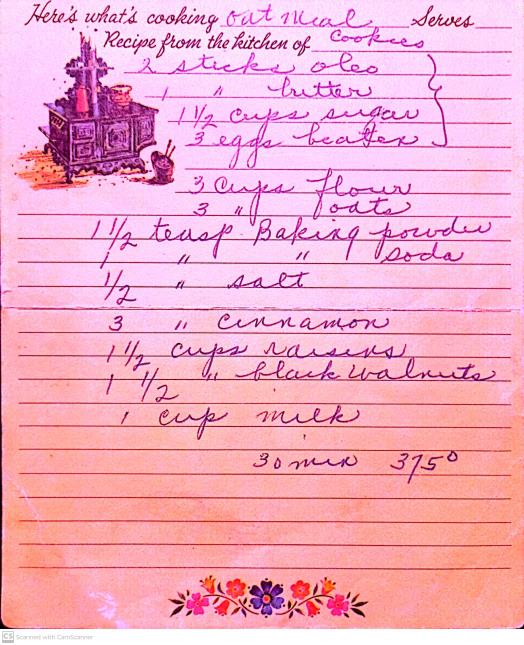 Here's what's cooking Oat Meal Serves
Recipe from the kitchen of Cookies
2 sticks oleo
1 " butter
1 1/2 cups sugar
3 eggs beaten
3 cups flour
3 " oats
1 1/2 teasp Baking powder
1 " " soda
1/2 " salt
3 " cinnamon
1 1/2 cups raisins
1 1/2 " black walnuts
1 cup milk
30 min 375°
CS Scanned with CamScanner